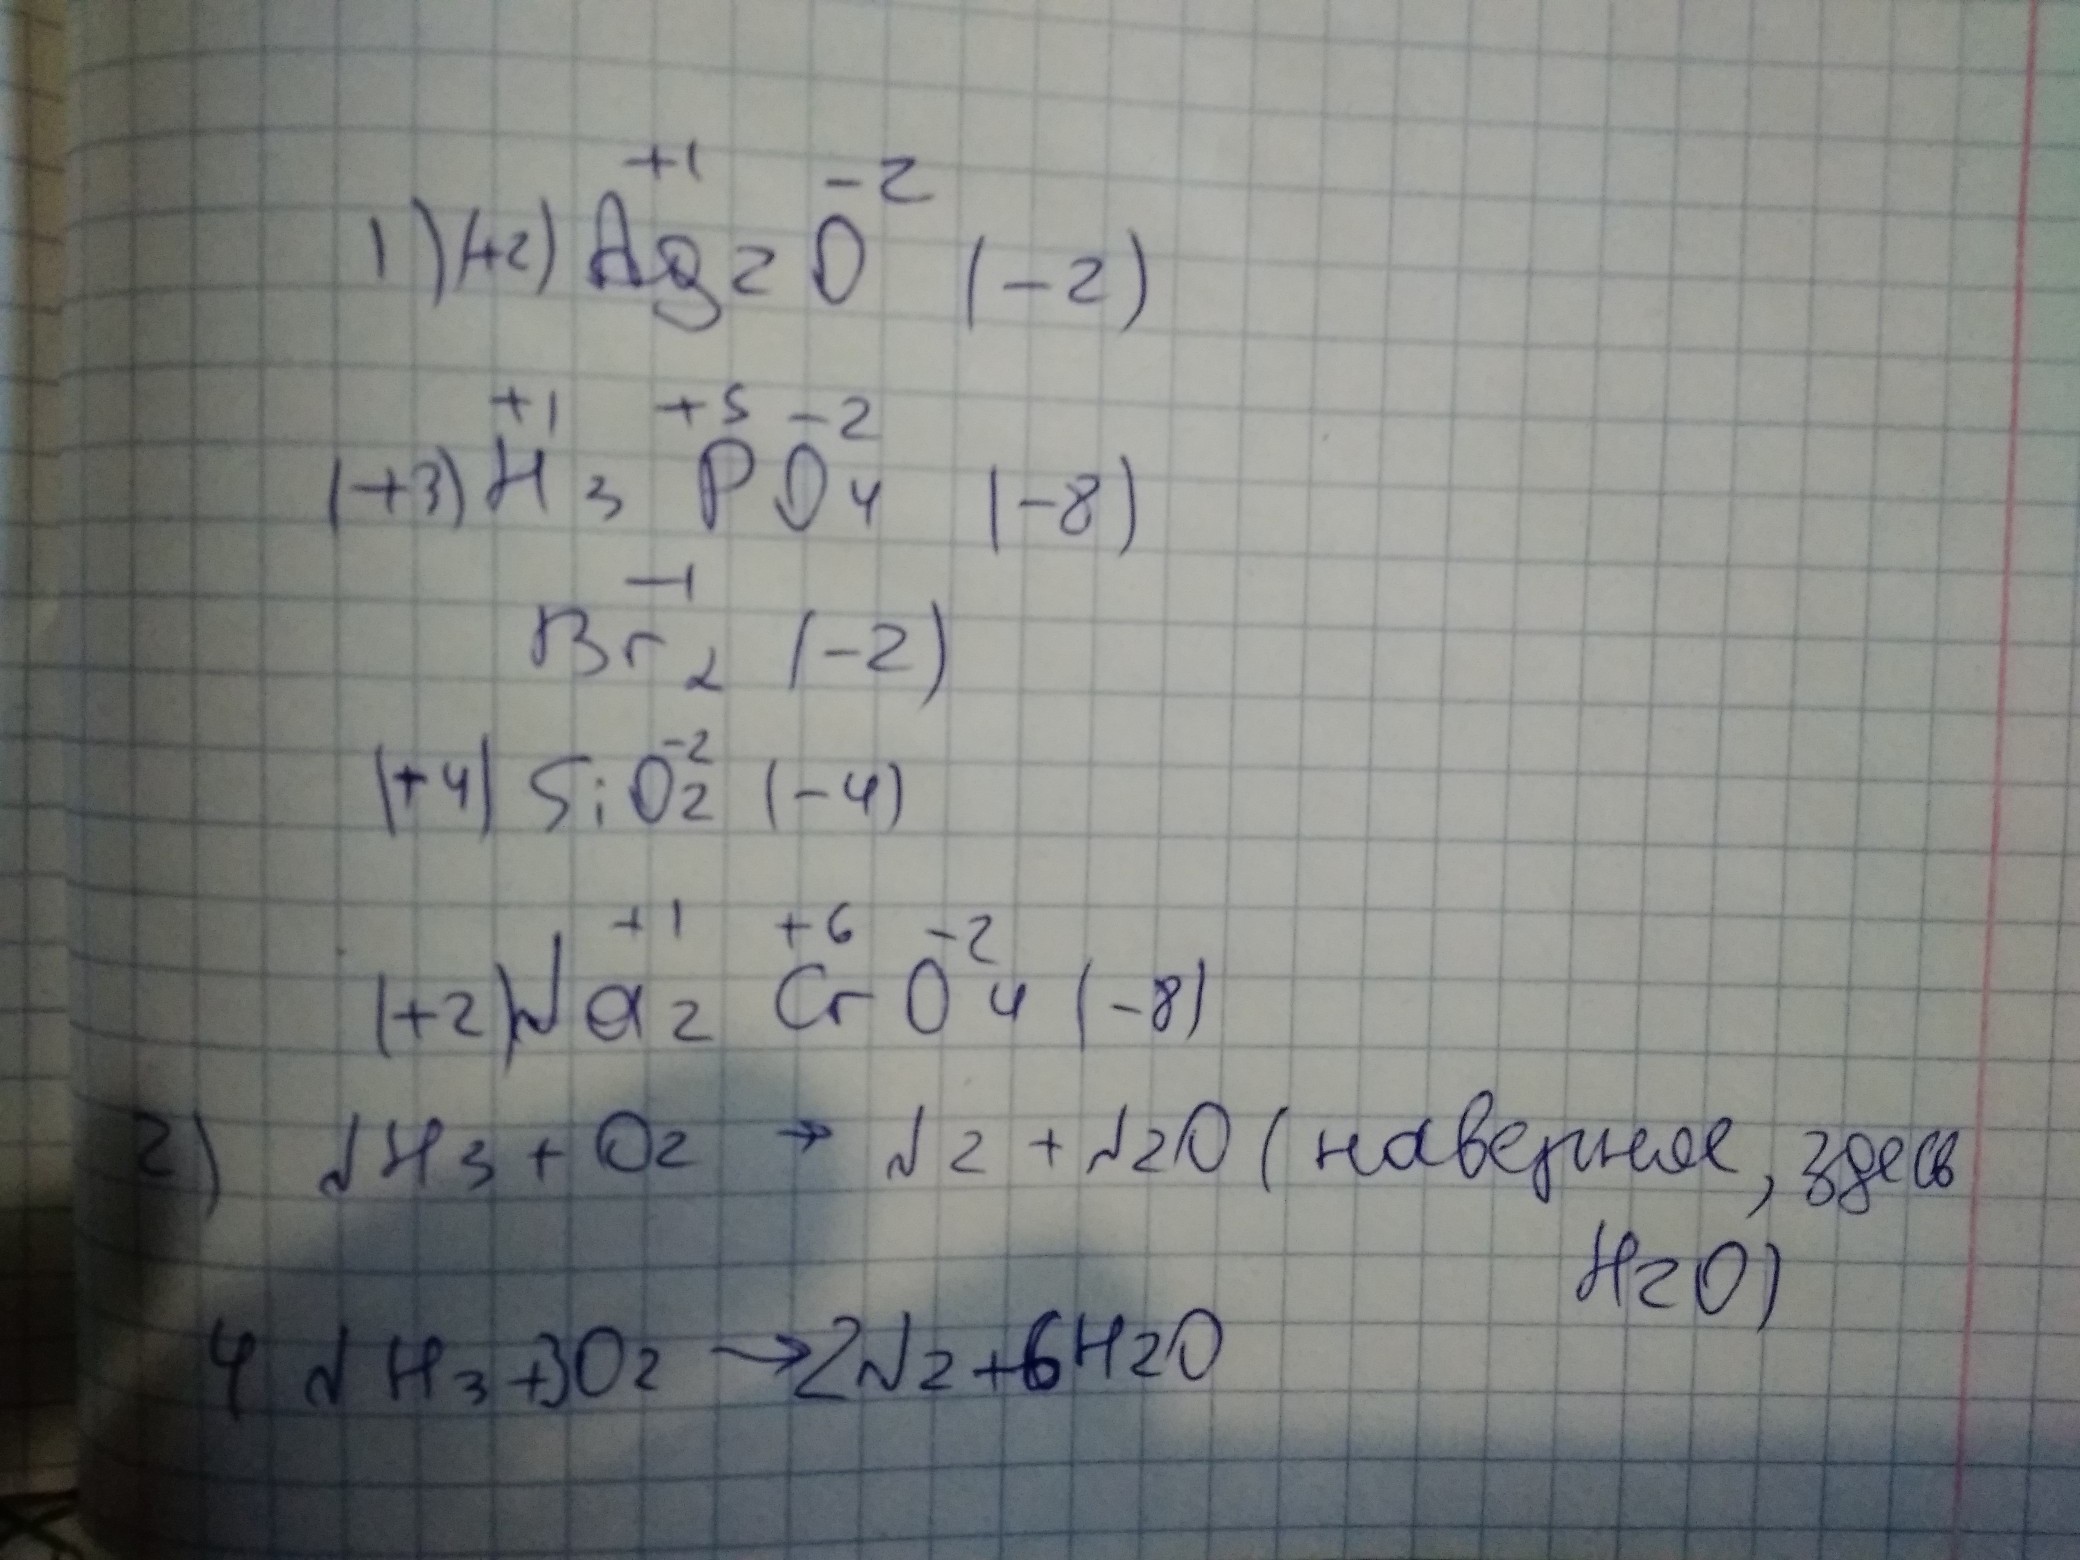 +1 -2
1) (+2) Ag2O (-2)
+1 +5 -2
(+3) H3 PO4 (-8)
-1
Br2 (-2)
-2
(+4) SiO2 (-4)
+1 +6 -2
(+2) Na2 CrO4 (-8)
2) NH3 + O2 → N2 + N2O (наверное, здесь
H2O)
4 NH3 + 3O2 → 2N2 + 6H2O